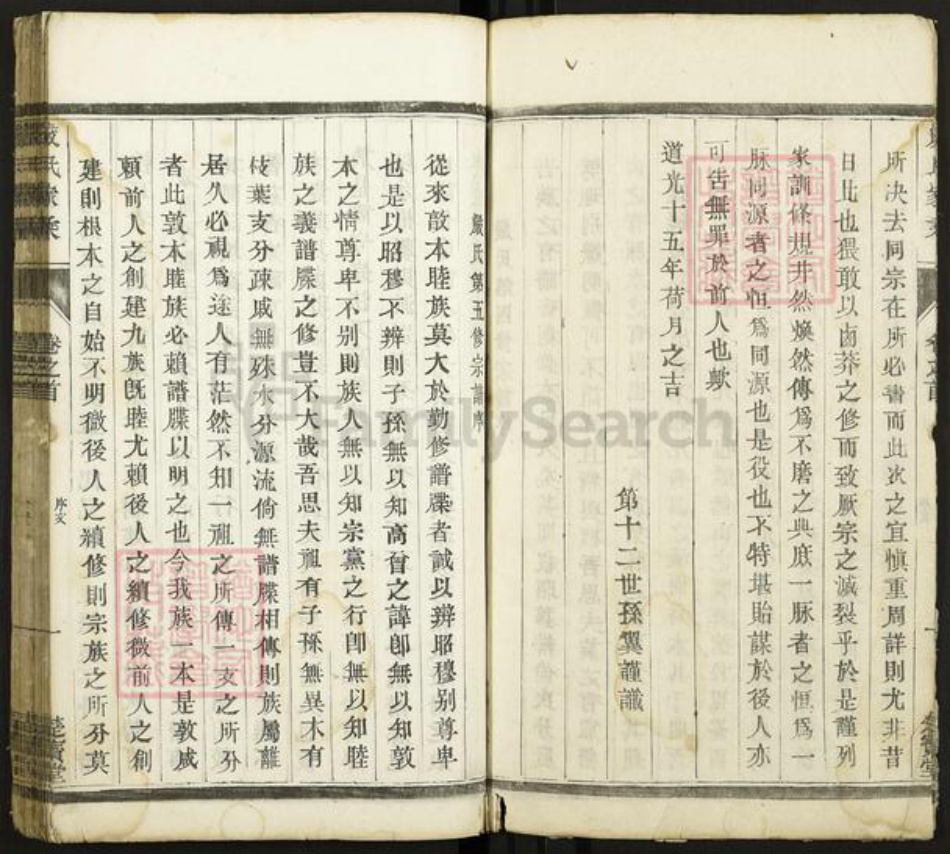 所决去同宗在所必書而此次之宜慎重周詳則尤非昔
日比也猥敢以鹵莽之修而致厥宗之滅裂乎於是謹列
家訓條規井然煥然傳爲不磨之典庶一脉者之恒爲一
脉同源者之恒爲同源也是役也不特堪貽謀於後人亦
可告無罪於前人也歟
道光十五年荷月之吉
第十二世孫翼謹識
嚴氏第五修宗譜序
從來敦本睦族莫大於勤修譜牒者誠以辨昭穆别尊卑
也是以昭穆不辨則子孫無以知高曾之諱卽無以知敦
本之情尊卑不别則族人無以知宗黨之行卽無以知睦
族之義譜牒之修豈不大哉吾思夫祖有子孫無異木有
枝葉支分疎戚無殊水分源流倘無譜牒相傳則族屬離
居久必視爲途人有茫然不知一祖之所傳一支之所分
者此敦本睦族必賴譜牒以明之也今我族一本是敦咸
賴前人之創建九族旣睦尤賴後人之續修微前人之創
建則根本之自始不明微後人之續修則宗族之所分莫
嚴氏家乘
卷之首
序
一
楚寶堂
FamilySearch